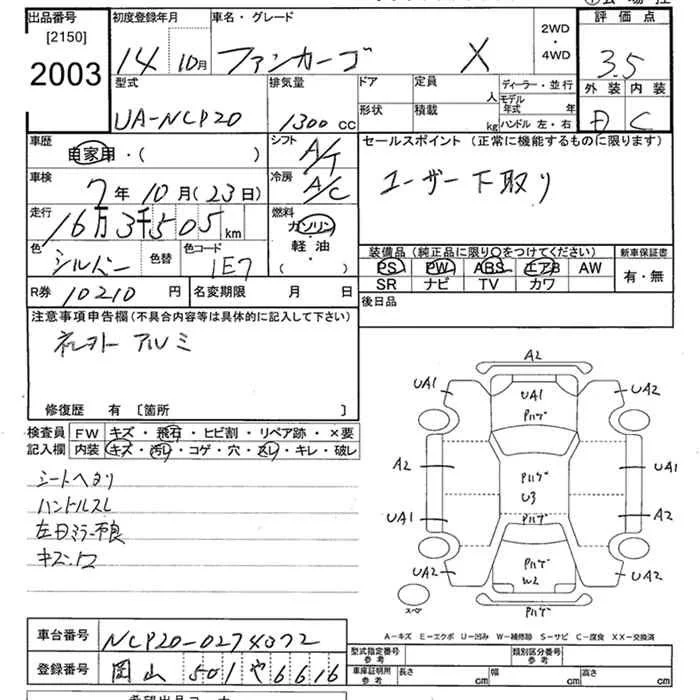 出品番号 初度登録年月 車名・グレード 2WD・4WD 評価点
[2150]
2003 14 10月 ファンカーゴ X 3.5
型式 排気量 ドア 定員 人 ディーラー・並行 外装 内装
UA-NCP20 1300cc 形状 積載 kg モデル年式 年 ハンドル 左・右 D C
車歴 自家用・( ) シフト A/T セールスポイント (正常に機能するものに限ります)
車検 7年10月(23日) 冷房 A/C ユーザー下取り
走行 16万3千505km 燃料 ガソリン・軽油・( )
色 シルバー 色替 色コード 1E7
装備品 (純正品に限り〇をつけてください) 新車保証書
PS PW ABS エアB AW 有・無
SR ナビ TV カワ
R券 10210円 名変期限 月 日 後日品
注意事項申告欄(不具合内容等は具体的に記入して下さい)
アルミ
修復歴 有 [箇所 ]
検査員記入欄 FW キズ・飛石・ヒビ割・リペア跡・×要
内装 キズ・汚レ・コゲ・穴・スレ・キレ・破レ
シートヘタリ
ハンドルスレ
左Dミラー不良
A2
UA1 UA1 UA2
Pハゲ
A2 Pハゲ UA1
U3
UA1 Pハゲ A2
UA2 Pハゲ UA2
W2
スペア Pハゲ
A－キズ E－エクボ U－凹み W－補修跡 S－サビ C－腐食 XX－交換済
車台番号 NCP20-0274072
登録番号 岡山 501 や 6616
型式指定番号 参考 類別区分番号 参考
車庫証明用 参考 長さ cm 幅 cm 高さ cm